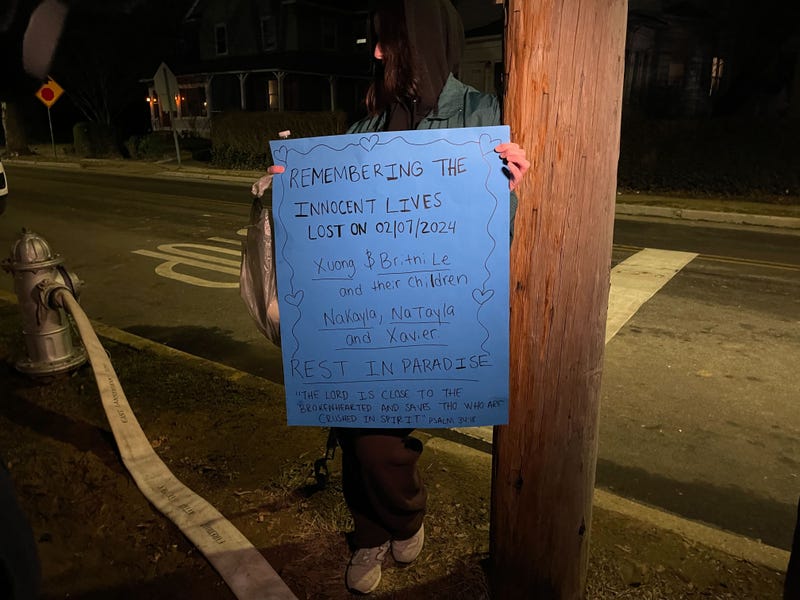 REMEMBERING THE
INNOCENT LIVES
LOST ON 02/07/2024
Xuong & Britni Le
and their children
NaKayla, NaTayla
and Xavier
REST IN PARADISE
"THE LORD IS CLOSE TO THE
BROKENHEARTED AND SAVES THO WHO ARE
CRUSHED IN SPIRIT" PSALM 34:18